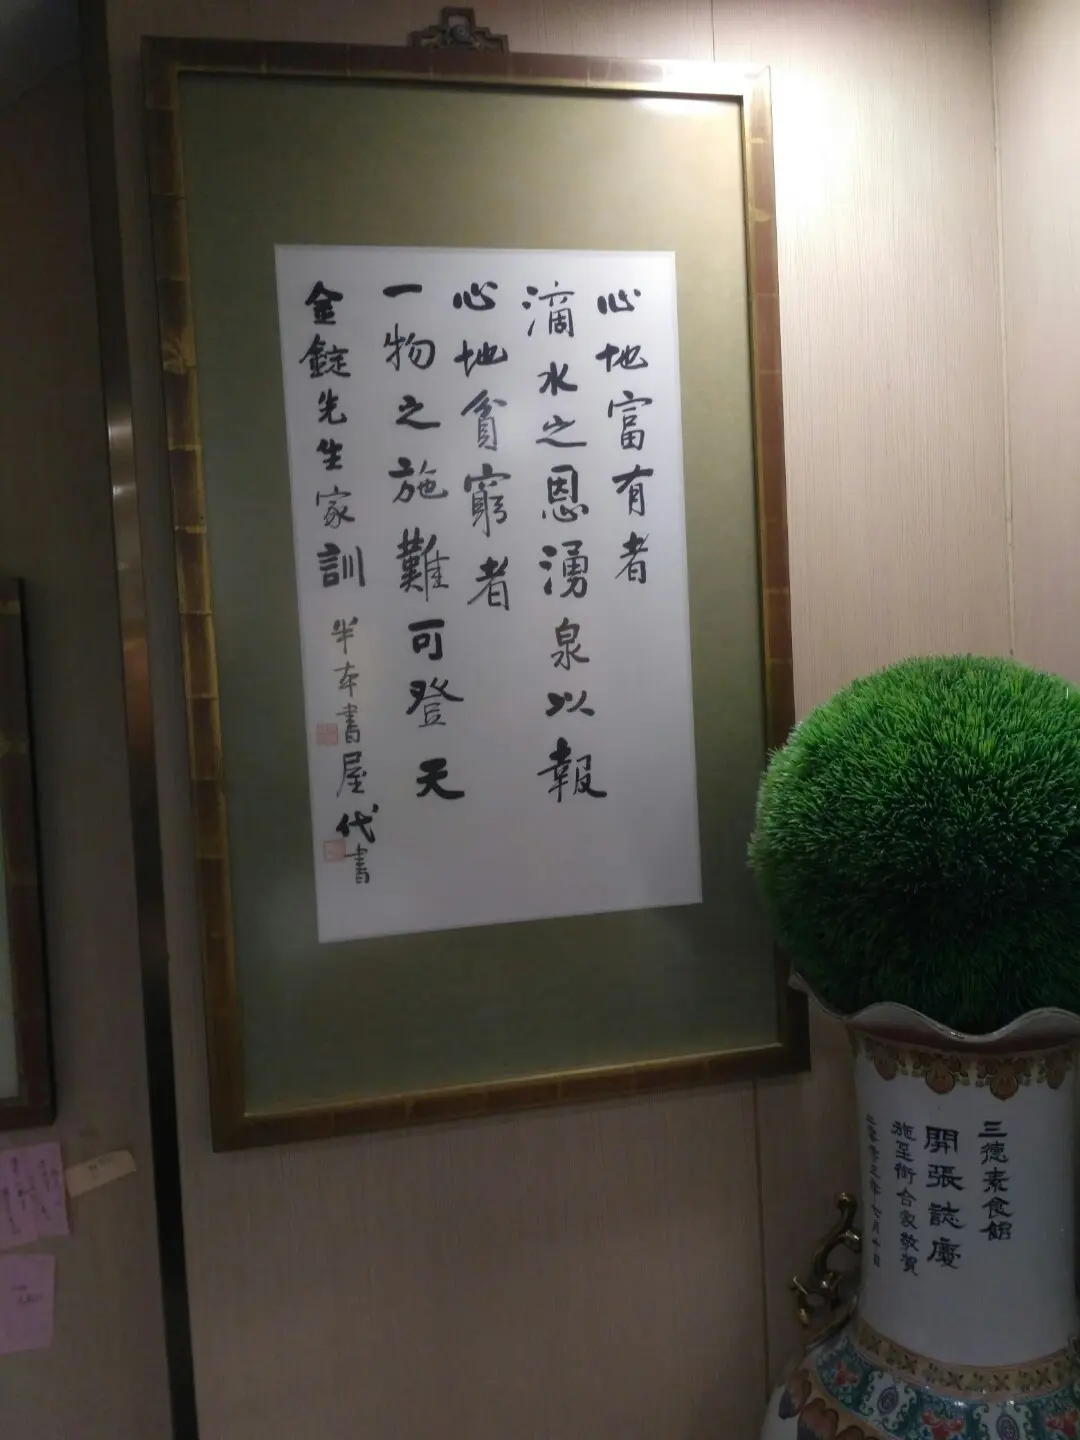 心地富有者
滴水之恩湧泉以報
心地貧窮者
一物之施難可登天
金錠先生家訓 半本書屋代書
三德素食館
開張誌慶
施至衔合家敬賀
二零零三年七月十日